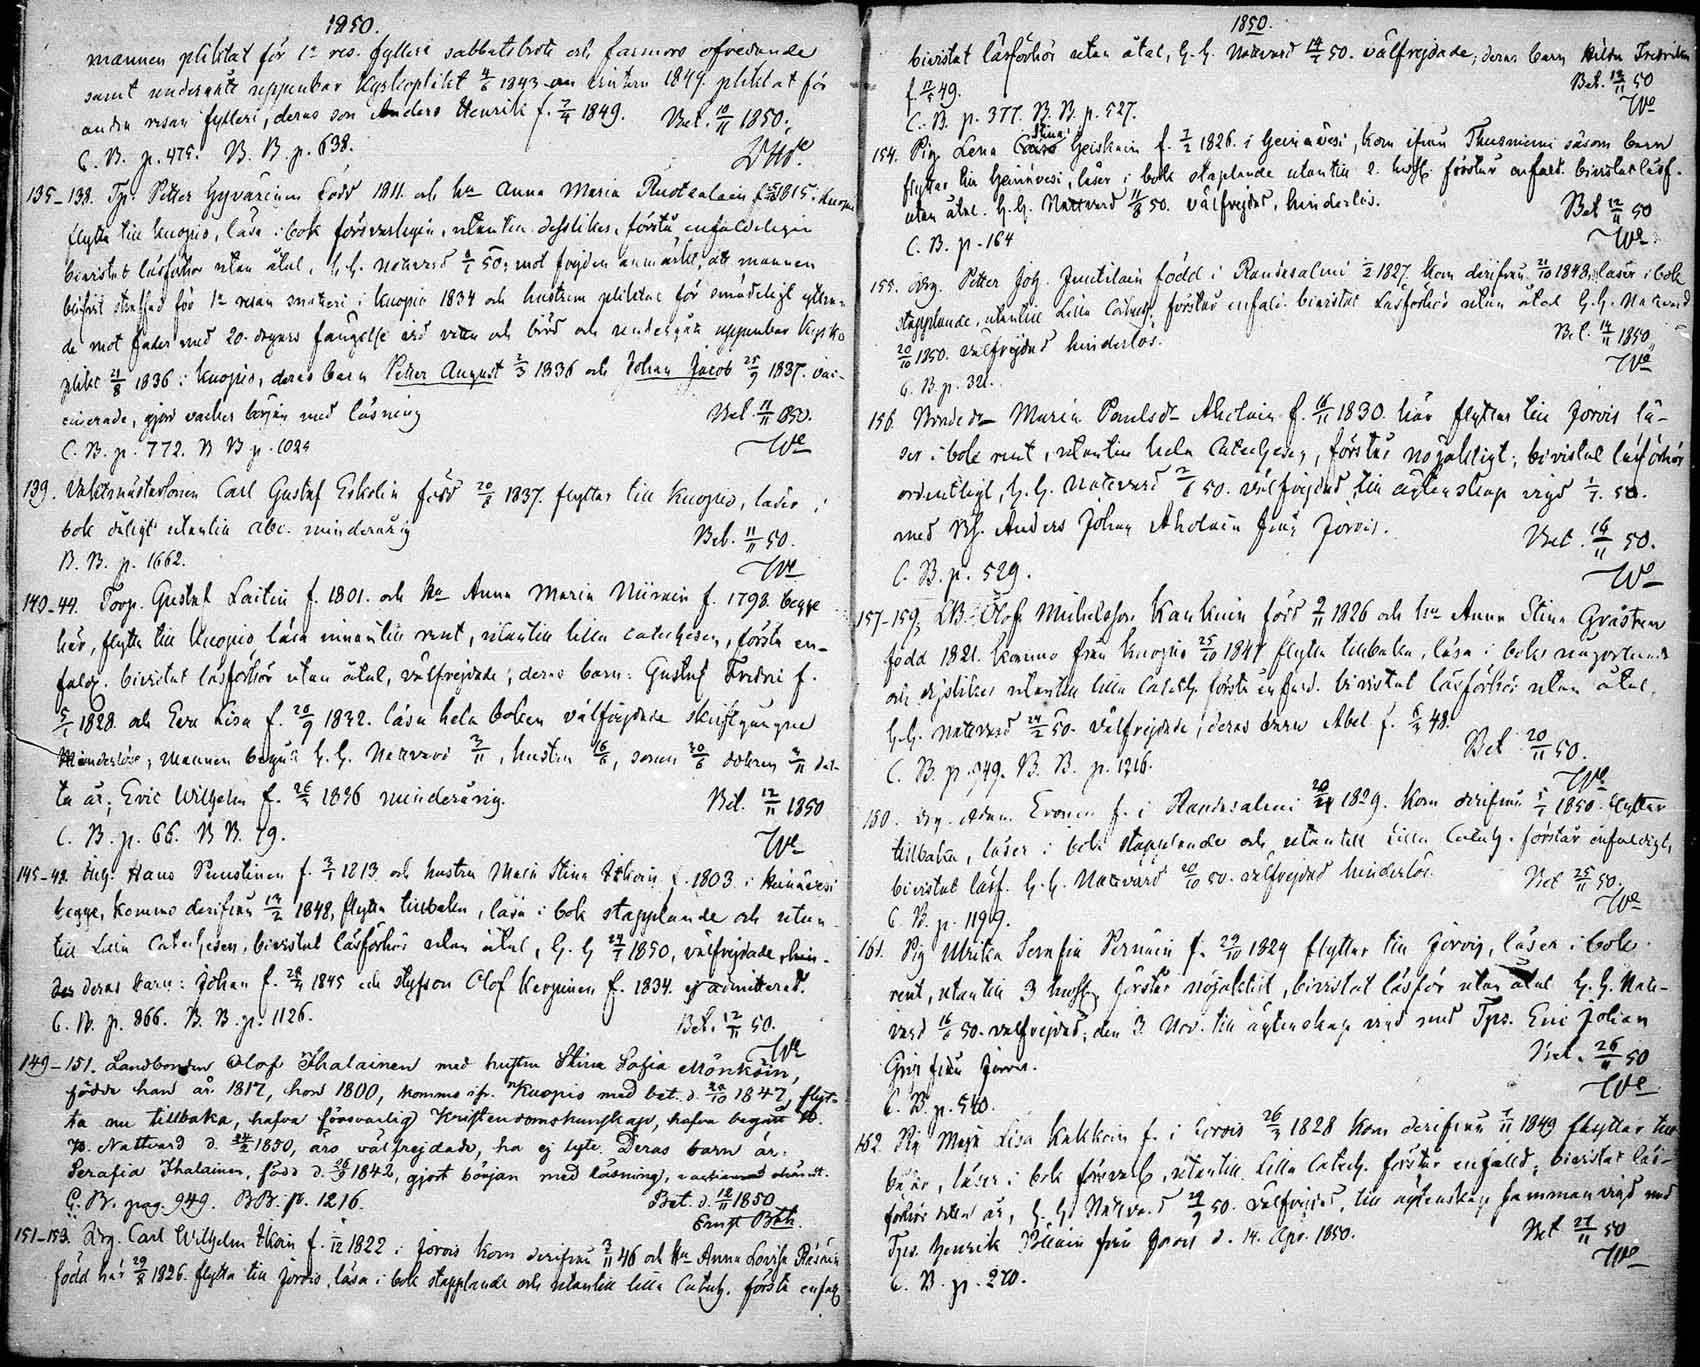 1850.
mannen pliktat för 1a res. fylleri sabbatsbrott och farmors ofredande
samt undergått uppenbar Kyrkoplikt 4/6 1843 1849 pliktat för
andra resan fylleri, deras son Anders Henrik f. 7/4 1849. Bet. 10/11 1850.
C. B. p. 475. B. B. p. 638.
135-138. Tp. Petter Hyvärinen född 1811. och hu Anna Maria 1815. Kuopio
flytta till Kuopio, läsa i bok försvarligen, utantill dessslikes, förstå enfaldeligen
bivistat läsförhör utan åtal, h. h. nattvard 50; mot frejden anmärkt, att mannen
blifvit straffad för 1a resan snatteri i Kuopio 1834 och hustrun pliktat för smädeligt yttran-
de mot fader med 20 dygns fängelse vid vatten och bröd och undergått uppenbar Kyrko
plikt 21/8 1836 i Kuopio, deras barn Petter August 2/3 1836 och Johan Jacob 25/9 1837. vac-
cinerade, gjort vacker början med läsning Bet. 11/11 1850.
C. B. p. 772. B B p. 1029 We
139. Vaktmästarsonen Carl Gustaf Eskolin född 20/8 1837. flyttar till Kuopio, läser i
bok dåligt utantill abc. minderårig Bet. 11/11 50.
B. B. p. 1662. We
140-44. Torp. Gustaf Laitin f. 1801. och hu Anna Maria f. 1798. begge
här, flytta till Kuopio läsa innantill rent, utantill lilla catechesen, förstå en-
fald. bivistat läsförhör utan åtal, välfrejdade; deras barn: Gustaf Fredric f.
5/1 1828. och Eva Lisa f. 20/9 1832. läsa hela boken välfrejdade skriftgångne
hinderlöse, mannen begått h. h. nattvard 3/11, hustrun 16/6, sonen 30/6 dottren 3/11 det-
ta år; Eric Wilhelm f. 1836 minderårig. Bet. 12/11 1850
C. B. p. 66. B B. 79. We
145-48. Inh. Hans Puustinen f. 1813 och hustru Maria Stina f. 1803 i Heinävesi
begge, kommo derifrån 14/2 1848, flytta tillbaka, läsa i bok stapplande och utan-
till Lilla Catechesen, bivistat läsförhör utan åtal, h. h 24/7 1850, välfrejdade, hin-
der deras barn: Johan f. 28/4 1845 och styfson Olof f. 1834. ej admitterad.
C. B. p. 866. B. B. p. 1126. Bet. 12/11 50.
We
149-151. Landbonden Olof Ihalainen med hustru Stina Sofia Mönkäin,
födde han år 1817, hon 1800, komma ifr. Kuopio med bet. d. 20/10 1847, flyt-
ta nu tillbaka, hafva försvarlig Kristendomskunskap, hafva begått H.
H. Nattvard d. 24/2 1850, äro välfrejdade, ha ej lyte. Deras barn är:
Serafia Ihalainen, född d. 1842, gjort början med läsning,
C. B. pag. 949. BB. p. 1216. Bet. d. 12/11 1850
Ernst
151-153. Drg. Carl Wilhelm f. 1/12 1822 i Jorois kom derifrån 3/11 46 och hu Anna Lovisa Räsäin
född här 29/8 1826. flytta till Jorois, läsa i bok stapplande och utantill lilla Catech. förstå enfald
1850.
bivistat läsförhör utan åtal, h. h. Nattvard 14/4 50. välfrejdade; deras barn Hilda Fredrika
f. 12/5 49. Bet. 12/11 50
C. B. p. 377. B. B. p. 527. We
154. Pig. Lena Stina Heiskain f. 2/2 1826. i Heinävesi, kom ifrån såsom barn
flyttar till Heinävesi, läser i bok stapplande utantill 2. hufst. förstår enfald. bivistat läsf.
utan åtal. h. h. Nattvard 11/8 50. välfrejdad, hinderlös. Bet 12/11 50
C. B. p. 164 We
155. Drg. Petter Joh. Juutilain född i Randasalmi 1/2 1827. kom derifrån 21/10 1848, läser i bok
stapplande, utantill Lilla Catech. förstår enfald. bivistat Läsförhör utan åtal h. h. Nattvard
20/10 1850. välfrejdad hinderlös. Bet. 14/11 1850.
C. B. p. 321. We
156. Bondedr Maria Paulsdr Aholain f. 16/11 1830. här flyttar till Jorois lä-
ser i bok rent, utantill hela Catechesen, förstår nöjaktigt; bivistat läsförhör
ordentligt, h. h. Nattvard 2/6 50. välfrejdad, till äktenskap vigd 1/7. 50.
med Anders Johan Aholain från Jorois. Bet. 16/11 50.
C. B. p. 529. We
157-159. LB. Olof Michelsson Kaukain född 9/11 1826 och hu Anna Stina Gråsten
född 1821. komma från Kuopio 25/10 1847 flytta tillbaka, läsa i bok
och dessslikes utantill lilla Catech. förstå enfald. bivistat läsförhör utan åtal,
h. h. nattvard 24/2 50. välfrejdade; deras barn Abel f. 48. Bet 20/11 50.
C. B. p. 949. B. B. p. 1216. We
160. Drg. Adam f. i Randasalmi 1829. kom derifrån 1850. flyttar
tillbaka, läser i bok stapplande och utantill lilla Catech. förstår enfaldigt,
bivistat läsf. h. h. Nattvard 20/10 50. välfrejdad hinderlös. Bet 25/11 50.
C. B. p. 1199. We
161. Pig Ulrika Serafia f. 29/10 1829 flyttar till Jorois, läser i bok
rent, utantill 3 hufst. förstår nöjaktigt, bivistat läsför utan åtal h. h. Natt-
vard 16/6 50. välfrejdad; den 3. Nov. till äktenskap vigd med Tps. Eric Johan
från Jorois. Bet. 26/11 50
C. B. p. 540. We
162. Pig Maja Lisa Kakkoin f. i Jorois 26/3 1828 kom derifrån 1/11 1849 flyttar till-
baka, läser i bok försvarl, utantill Lilla Catech. förstår enfaldt, bivistat läs-
förhör detta år, h. h. Nattvard 29/9 50. välfrejdad, till äktenskap samman vigd med
Tps. Henrik från Jorois d. 14. Apr. 1850. Bet 27/11 50
C. B. p. 270. We